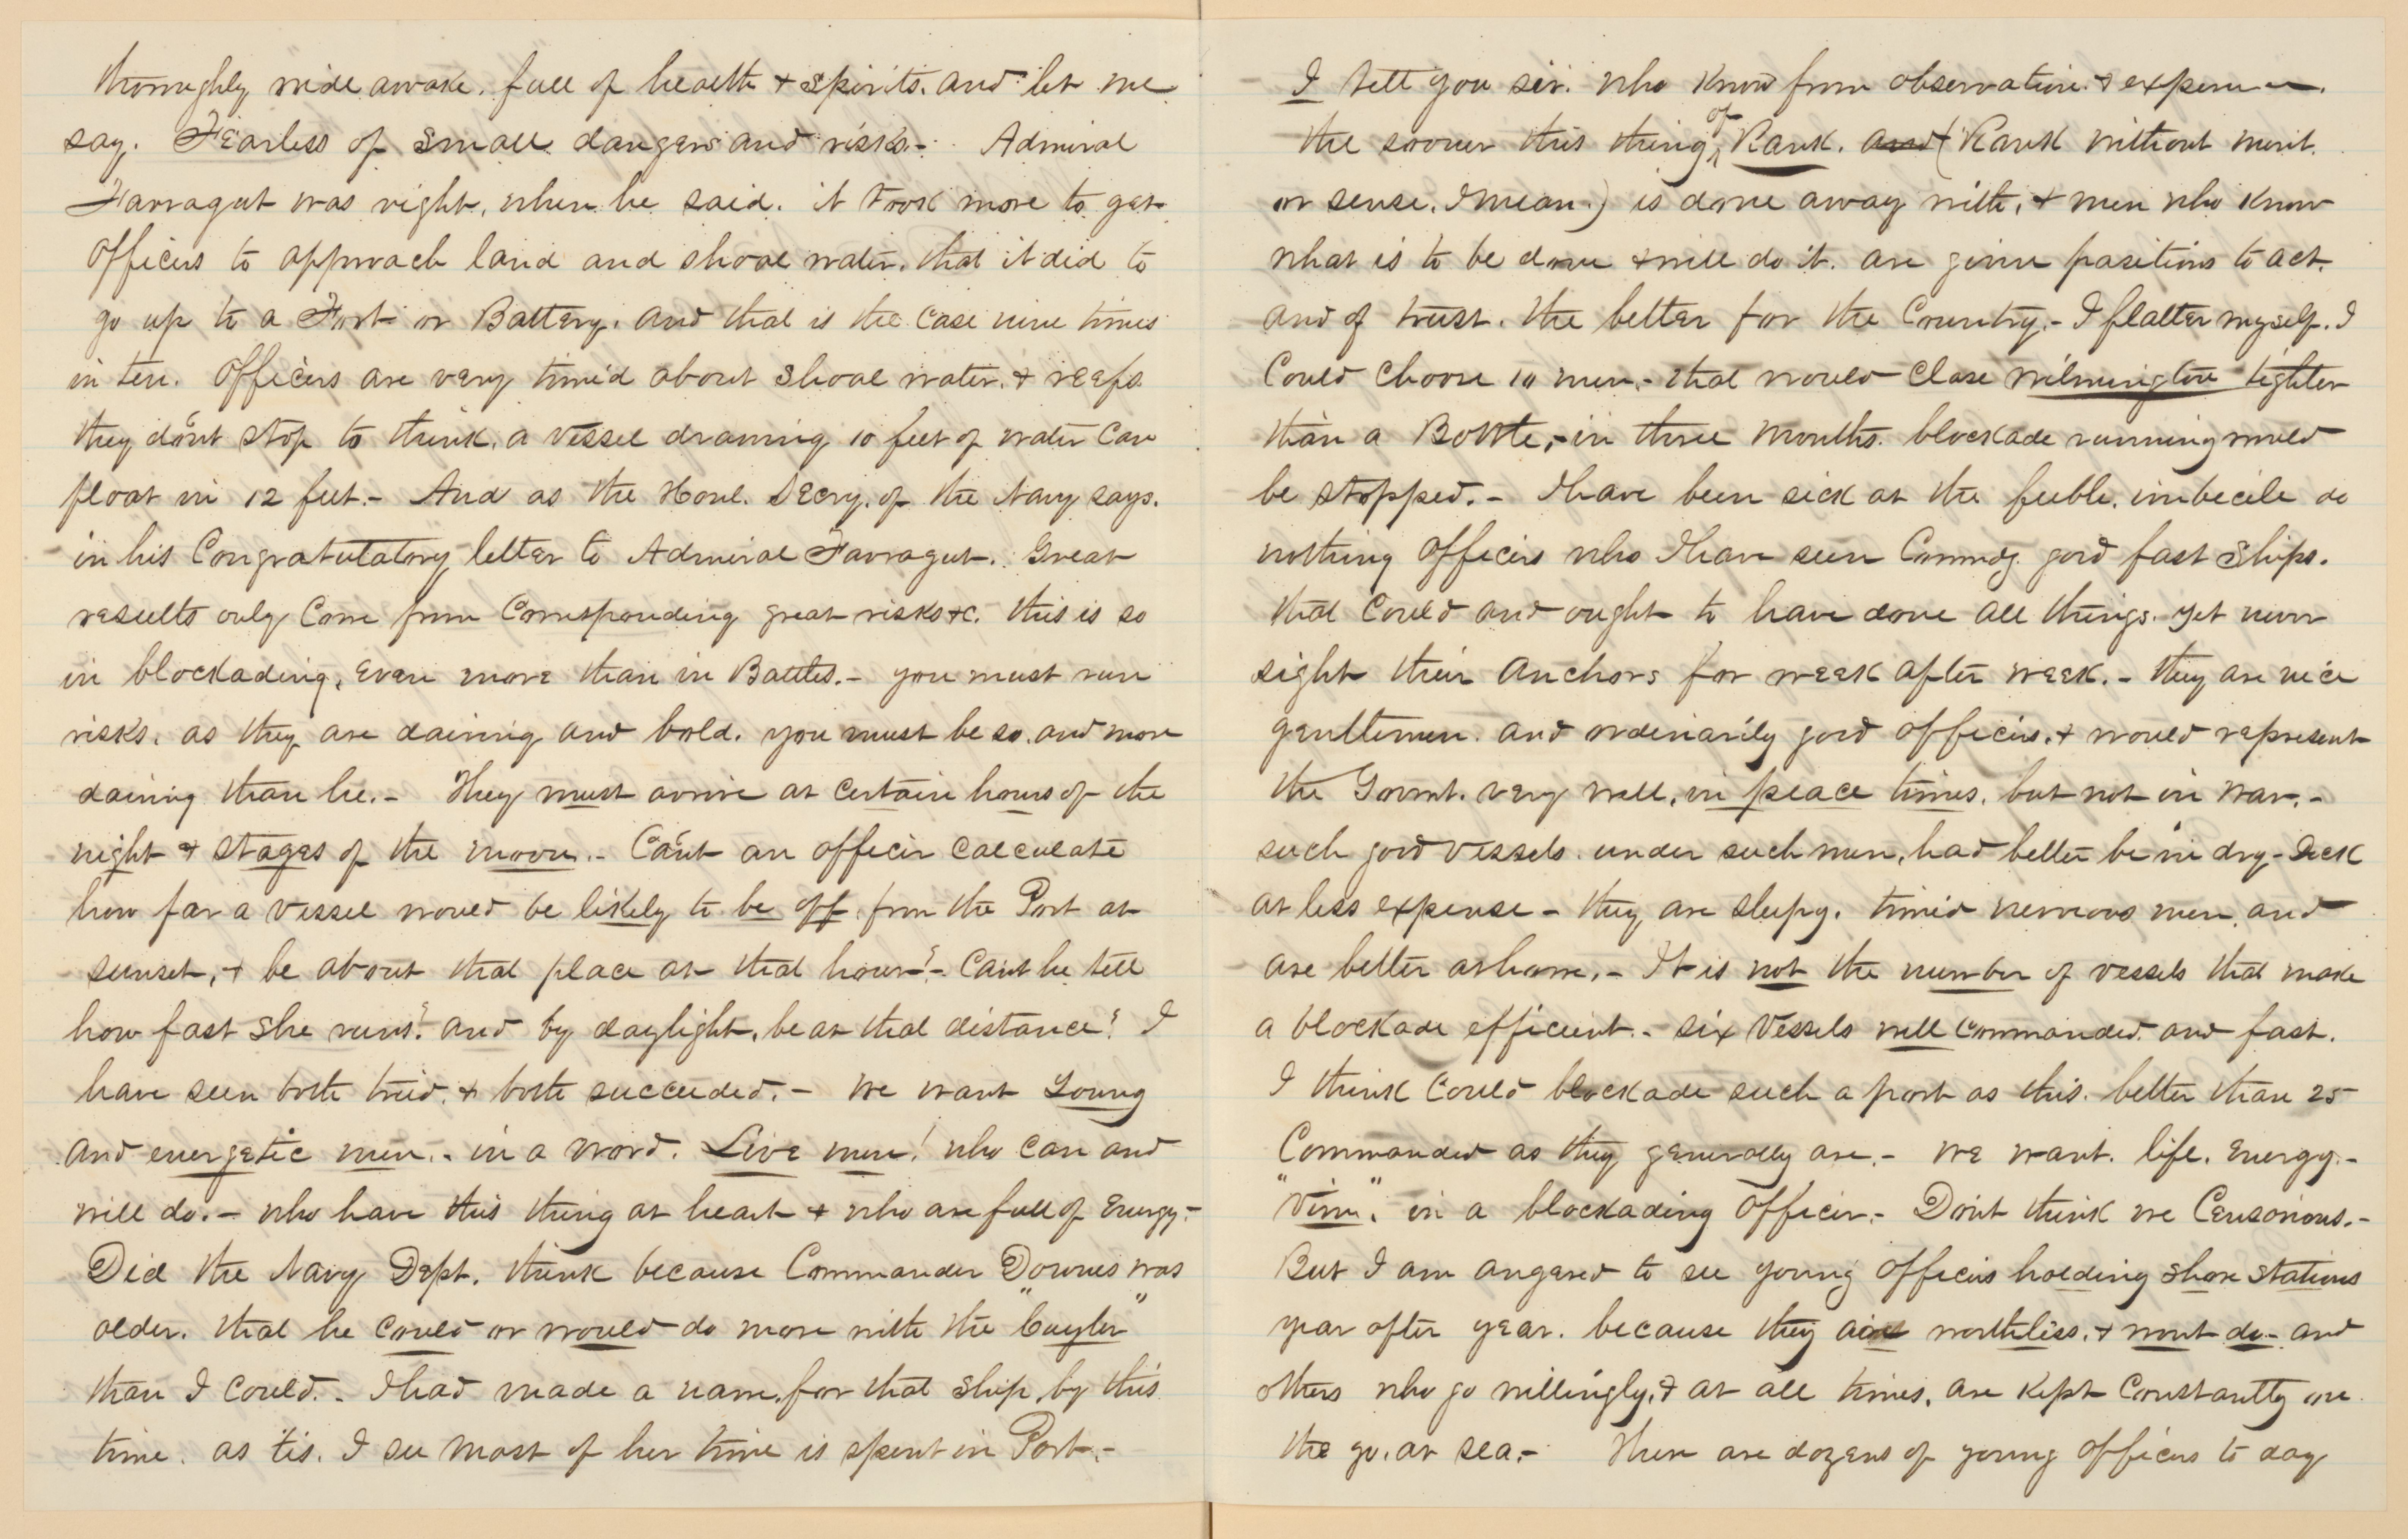 thoroughly wide awake. full of health & spirits. and let me
say. Fearless of small dangers and risks.- Admiral
Farragut was right, when he said. it took more to get
officers to approach land and shoal water, that it did to
go up to a Fort or Battery. and that is the case nine times
in ten. Officers are very timid about shoal water, & reefs
they don't stop to think, a vessel drawing 10 feet of water can
float in 12 feet.- And as the Honl. Secry. of the Navy says.
in his Congratulatory letter to Admiral Farragut. Great
results only come from corresponding great risks &c. this is so
in blockading, even more than in Battles.- you must run
risks. as they are dairing and bold. you must be so, and more
dairing than he.- They must arrive at certain hours of the
night & stages of the moon.- Can't an officer calculate
how far a vessel would be likely to be off from the Port at
sunset, & be about that place at that hour?- Can't he tell
how fast she runs? and by daylight, be at that distance? I
have seen both tried, & both succeeded.- we want young
and energetic men.- in a word. Live men! who can and
will do.- who have this thing at heart & who are full of Energy.-
Did the Navy Dept. think because Commander Downes was
older. that he could or would do more with the "Cuyler"
than I could.- I had made a name, for that ship, by this
time. as 'tis. I see most of her time is spent in Port.-
I tell you sir. who know from observation & experience.
the sooner this thing of Rank. and (Rank without merit.
or sense. I mean.) is done away with, & men who know
what is to be done & will do it. are given positions to act.
and of trust. the better for the Country.- I flatter myself. I
could choose 10 men.- that would close Wilmington tighter
than a Bottle,- in three months. blockade running would
be stopped.- I have been sick at the feeble. imbecile do
nothing officers who I have seen Commdg. good fast ships.
that could and ought to have done all things. yet never
sight their anchors for week after week.- they are nice
genttemen. and ordinarily good officers, & would represent
the Govmt. very well, in peace times. but not in war.-
such good vessels. under such men, had better be in dry-Dock
at less expense - they are sleepy. timid nervous men, and
are better at home.- It is not the number of vessels that make
a blockade efficient.- six vessels well commanded. and fast.
I think could blockade such a port as this. better than 25
Commanded as they generally are.- we want. life. Energy.-
"Vim". in a blockading officer.- Don't think me Censorious.-
But I am angered to see young officers holding shore stations
year after year. because they are worthless. & wont do- and
others who go willingly, & at all times, are kept constantly on
the go, at sea.- There are dozens of young officers to day